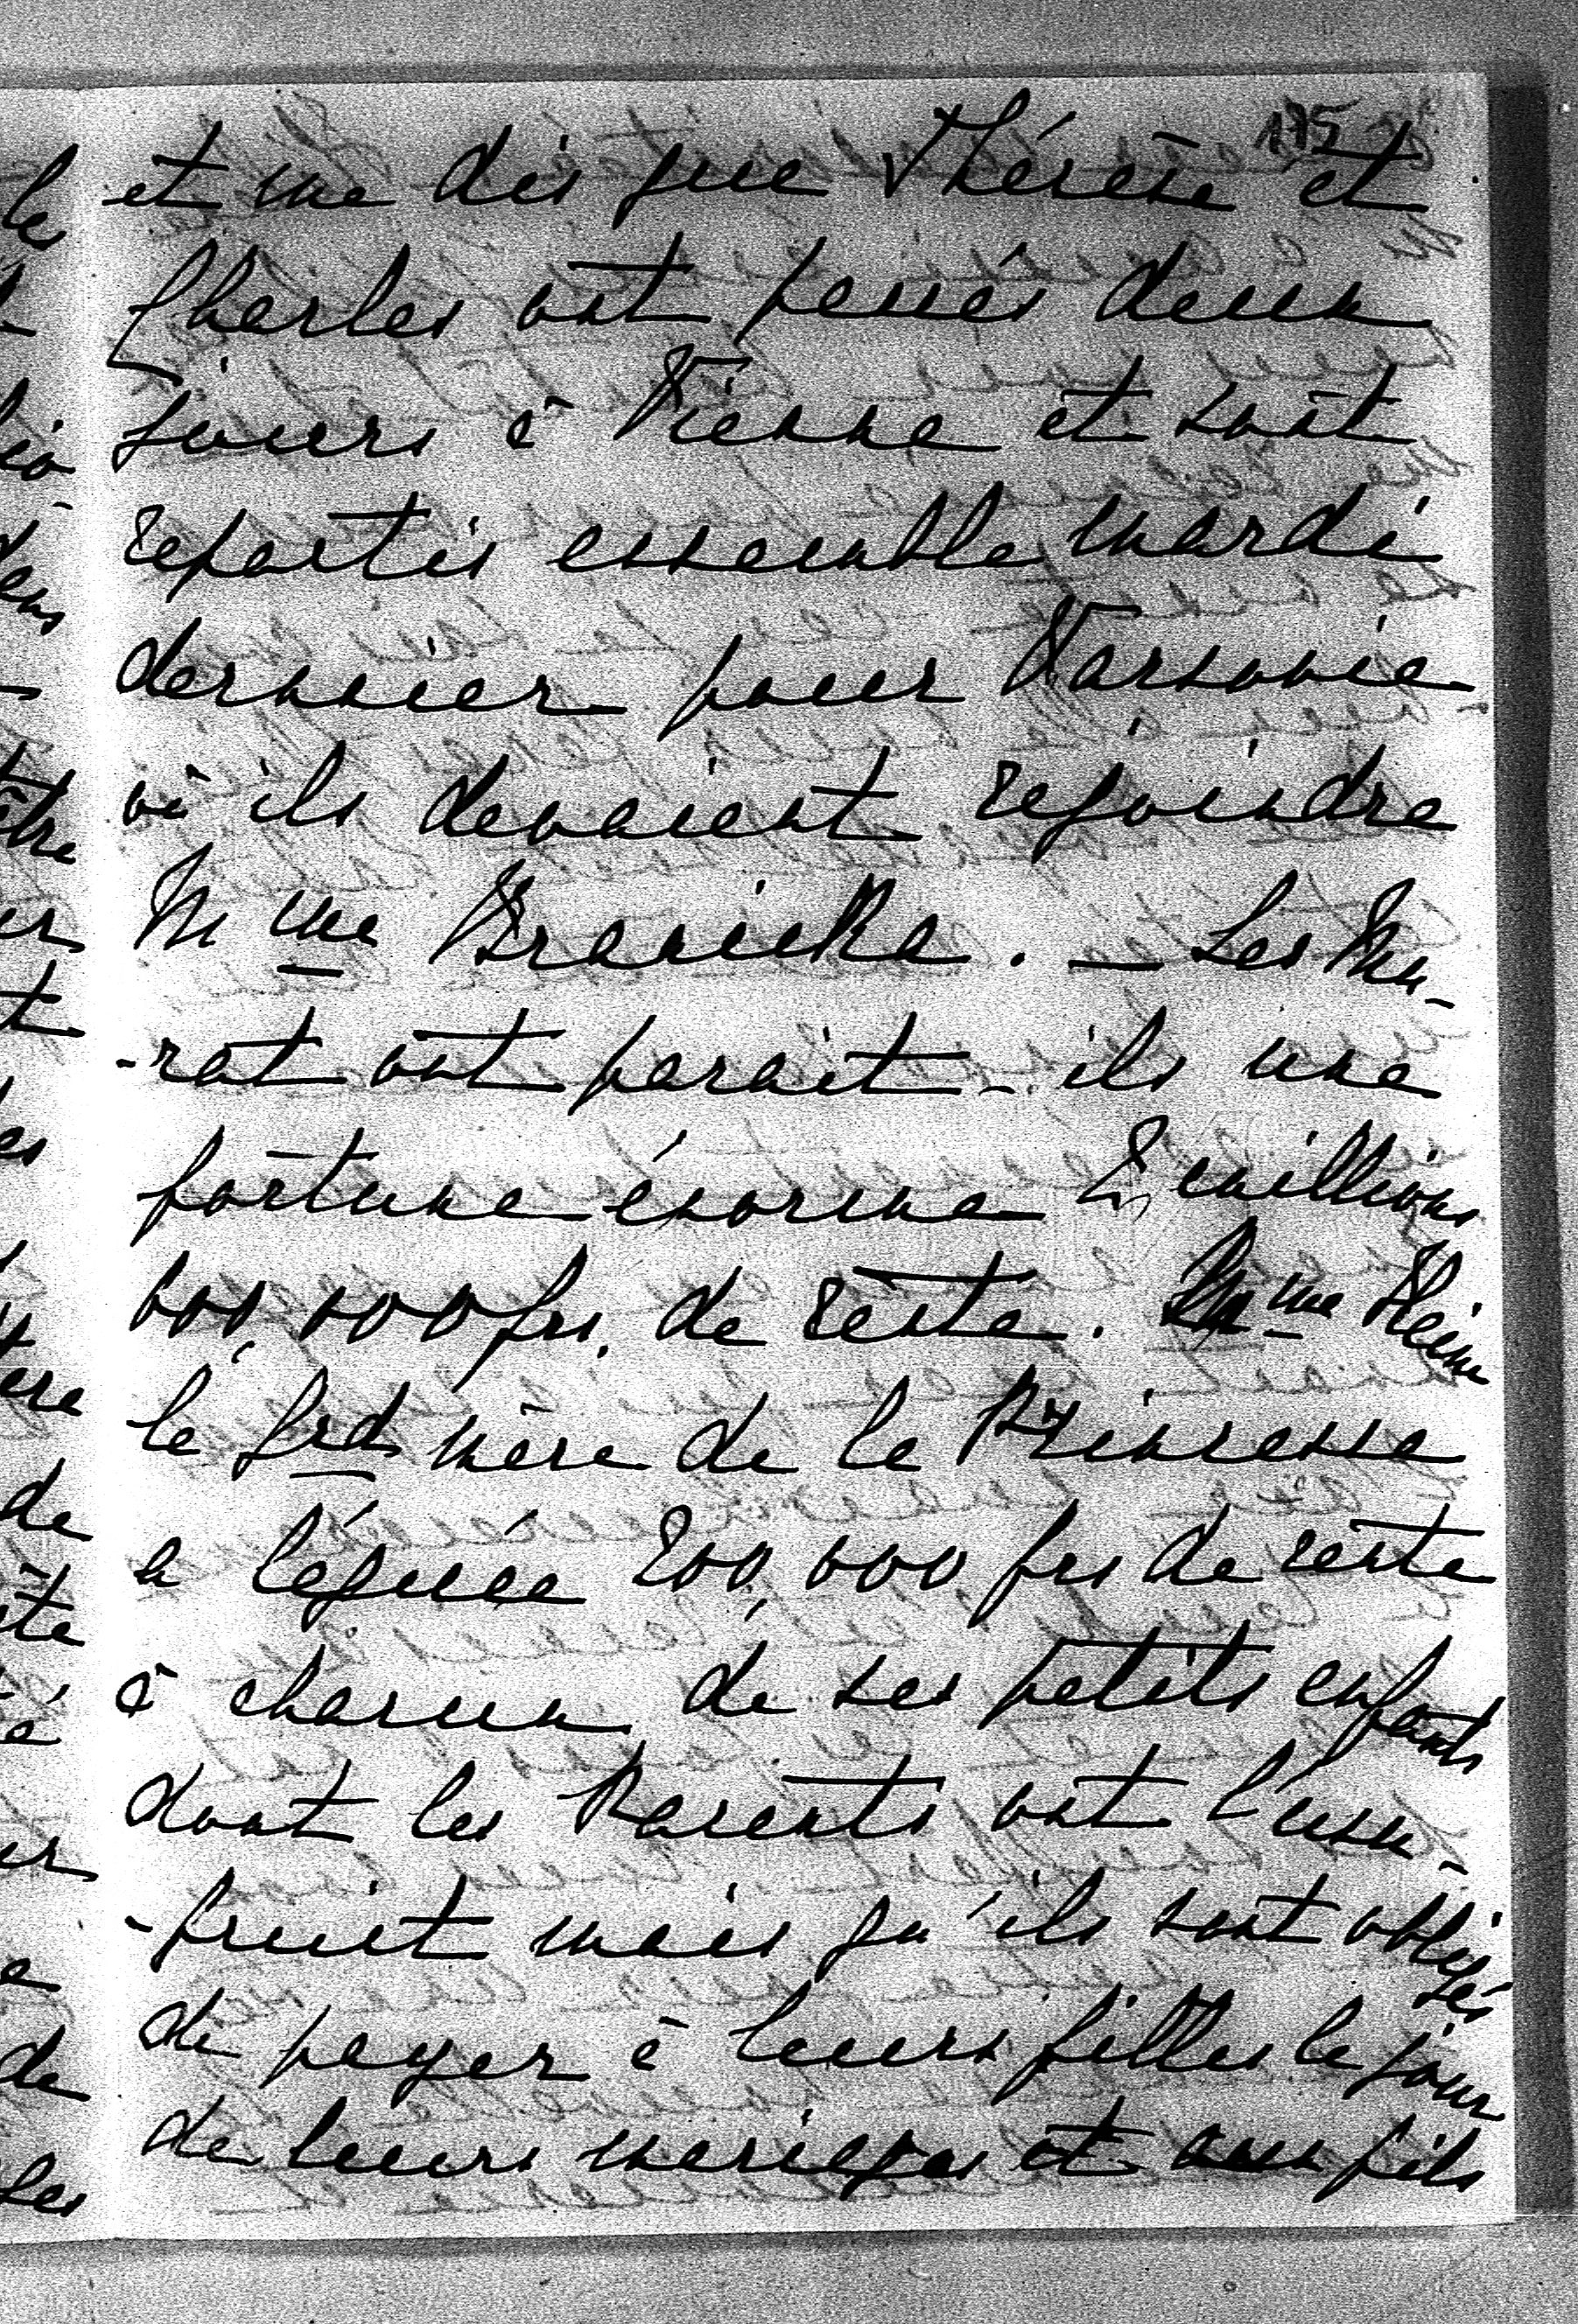 175
et me dis que Thérèse et
Charles ont passés deux
jours à Vienne et sont
repartis ensemble mardi
dernier pour Varsovie
où ils devaient rejoindre
Mme Branicka. — Les Mu-
-rat ont parait-ils une
fortune énorme 2 millions
600,000 frs. de rente. Mme Heine
la grd mère de la Princesse
a léguée 200,000 frs de rente
à chacun de ses petits enfants
dont les Parents ont l'usu-
-fruit mais qu'ils sont obligés
de payer à leurs filles le jour
de leurs mariages et aux fils